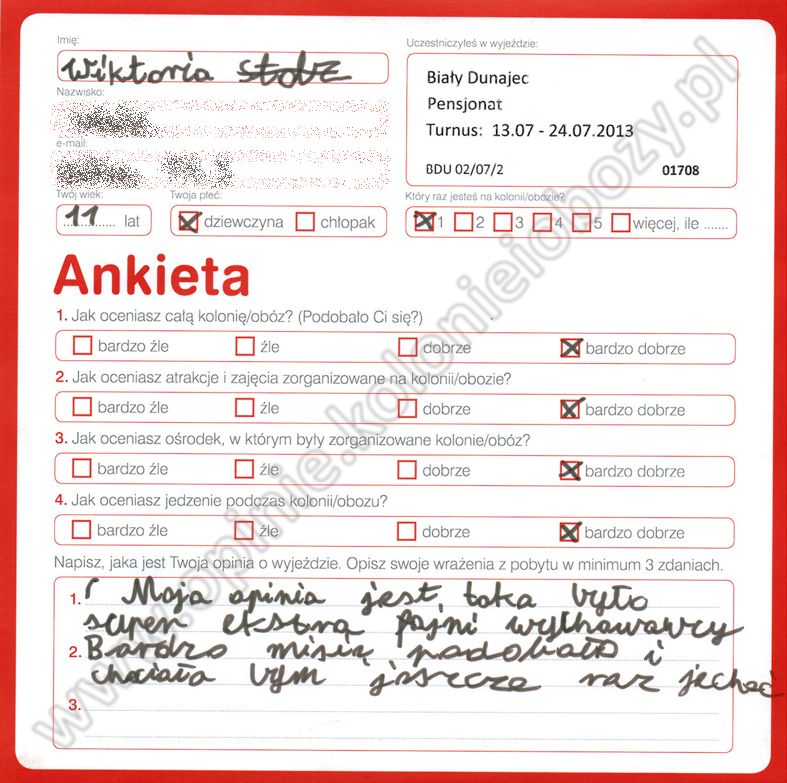 Imię:
Wiktoria
Uczestniczyłeś w wyjeździe:
Biały Dunajec
Pensjonat
Turnus: 13.07 - 24.07.2013
BDU 02/07/2 01708
Nazwisko:
e-mail:
Twój wiek: Twoja płeć:
11 lat dziewczyna chłopak
Który raz jesteś na kolonii/obozie?
1 2 3 4 5 więcej, ile .......
Ankieta
1. Jak oceniasz całą kolonię/obóz? (Podobało Ci się?)
bardzo źle źle dobrze bardzo dobrze
2. Jak oceniasz atrakcje i zajęcia zorganizowane na kolonii/obozie?
bardzo źle źle dobrze bardzo dobrze
3. Jak oceniasz ośrodek, w którym były zorganizowane kolonie/obóz?
bardzo źle źle dobrze bardzo dobrze
4. Jak oceniasz jedzenie podczas kolonii/obozu?
bardzo źle źle dobrze bardzo dobrze
Napisz, jaka jest Twoja opinia o wyjeździe. Opisz swoje wrażenia z pobytu w minimum 3 zdaniach.
1. Moja opinia jest taka było
super ekstra fajni wychowawcy
2. Bardzo misię podobało i
chciała bym jeszcze raz jechać
3.
www.opinie.kolonieiobozy.pl